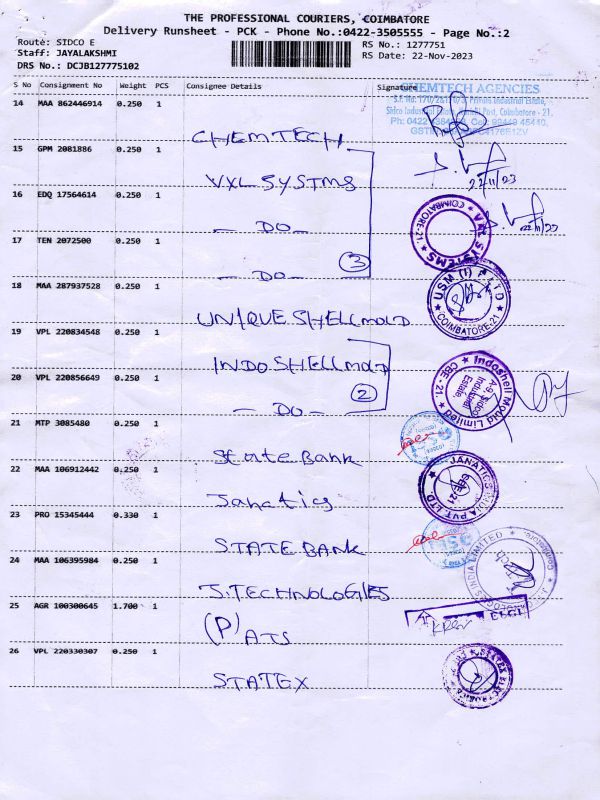 THE PROFESSIONAL COURIERS, COIMBATORE
Delivery Runsheet - PCK - Phone No.:0422-3505555 - Page No.:2
Route: SIDCO E
RS No.: 1277751
Staff: JAYALAKSHMI
RS Date: 22-Nov-2023
DRS No.: DCJB127775102
S No Consignment No Weight PCS Consignee Details Signature
CHEMTECH AGENCIES
14 MAA 862446914 0.250 1
CHEMTECH
15 GPM 2081886 0.250 1
VXL SYSTMS
22/11/23
16 EDQ 17564614 0.250 1
- DO -
22/11/23
VXL SYSTEMS ★ COIMBATORE-21. ★
17 TEN 2072500 0.250 1
3
- DO -
18 MAA 287937528 0.250 1
USM (I) P LTD ★ COIMBATORE-21 ★
UNIQUE SHELLMOLD
19 VPL 220834548 0.250 1
INDO SHELLMOLD
20 VPL 220856649 0.250 1
2
- DO -
Indoshell Mould Limited ★ CBE - 21. ★
A-9 Sidco Industrial Estate
21 MTP 3085480 0.250 1
State Bank
22 MAA 106912442 0.250 1
Janatics
JANATICS INDIA PVT. LTD
CBE-21
23 PRO 15345444 0.330 1
STATE BANK
24 MAA 106395984 0.250 1
J.TECHNOLOGIES
25 AGR 100300645 1.700 1
(P) ATS
ELGI
26 VPL 220330307 0.250 1
STATEX